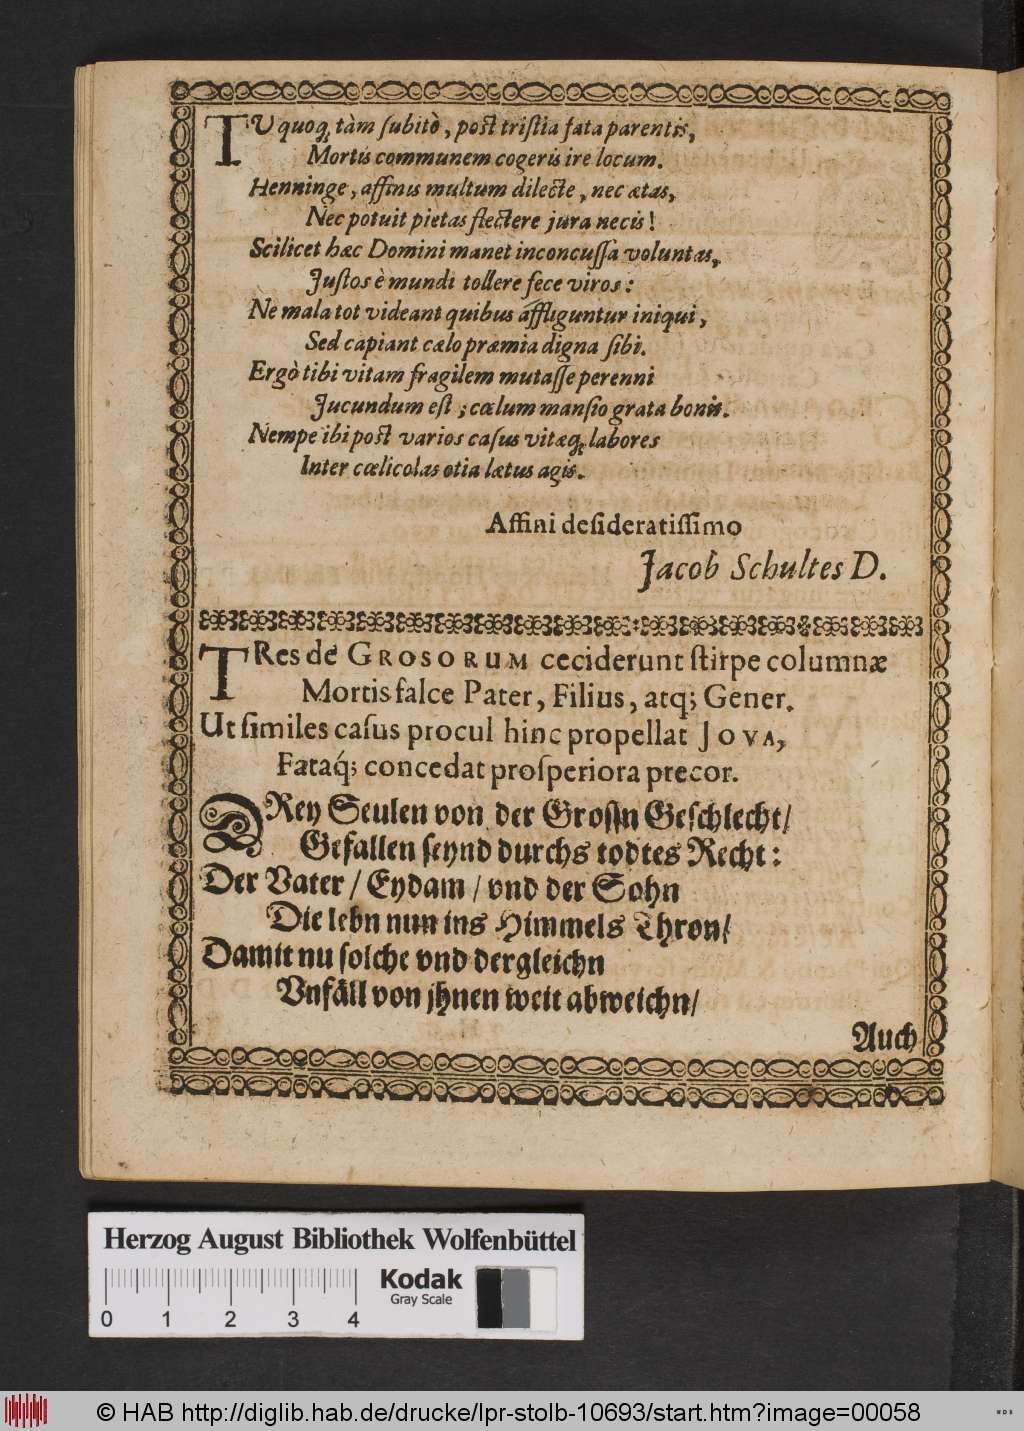 TU quoq; tàm ſubitò, poſt triſtia fata parentis,
Mortis communem cogeris ire locum.
Henninge, affinis multum dilecte, nec ætas,
Nec potuit pietas flectere jura necis!
Scilicet hæc Domini manet inconcuſſa voluntas,
Juſtos è mundi tollere fece viros:
Ne mala tot videant quibus affliguntur iniqui,
Sed capiant cælo præmia digna ſibi.
Ergò tibi vitam fragilem mutaſſe perenni
Jucundum eſt; cœlum manſio grata bonis.
Nempe ibi poſt varios caſus vitæq; labores
Inter cœlicolas otia lætus agis.
Affini deſideratiſſimo
Jacob Schultes D.
TRes de GROSORUM ceciderunt ſtirpe columnæ
Mortis falce Pater, Filius, atq; Gener.
Ut ſimiles caſus procul hinc propellat JOVA,
Fataq́; concedat proſperiora precor.
DRey Seulen von der Groſſn Geſchlecht/
Gefallen ſeynd durchs todtes Recht:
Der Vater / Eydam / vnd der Sohn
Die lebn nun ins Himmels Thron/
Damit nu ſolche vnd dergleichn
Vnfäll von jhnen weit abweichn/
Auch
Herzog August Bibliothek Wolfenbüttel
Kodak
Gray Scale
0 1 2 3 4
© HAB http://diglib.hab.de/drucke/lpr-stolb-10693/start.htm?image=00058